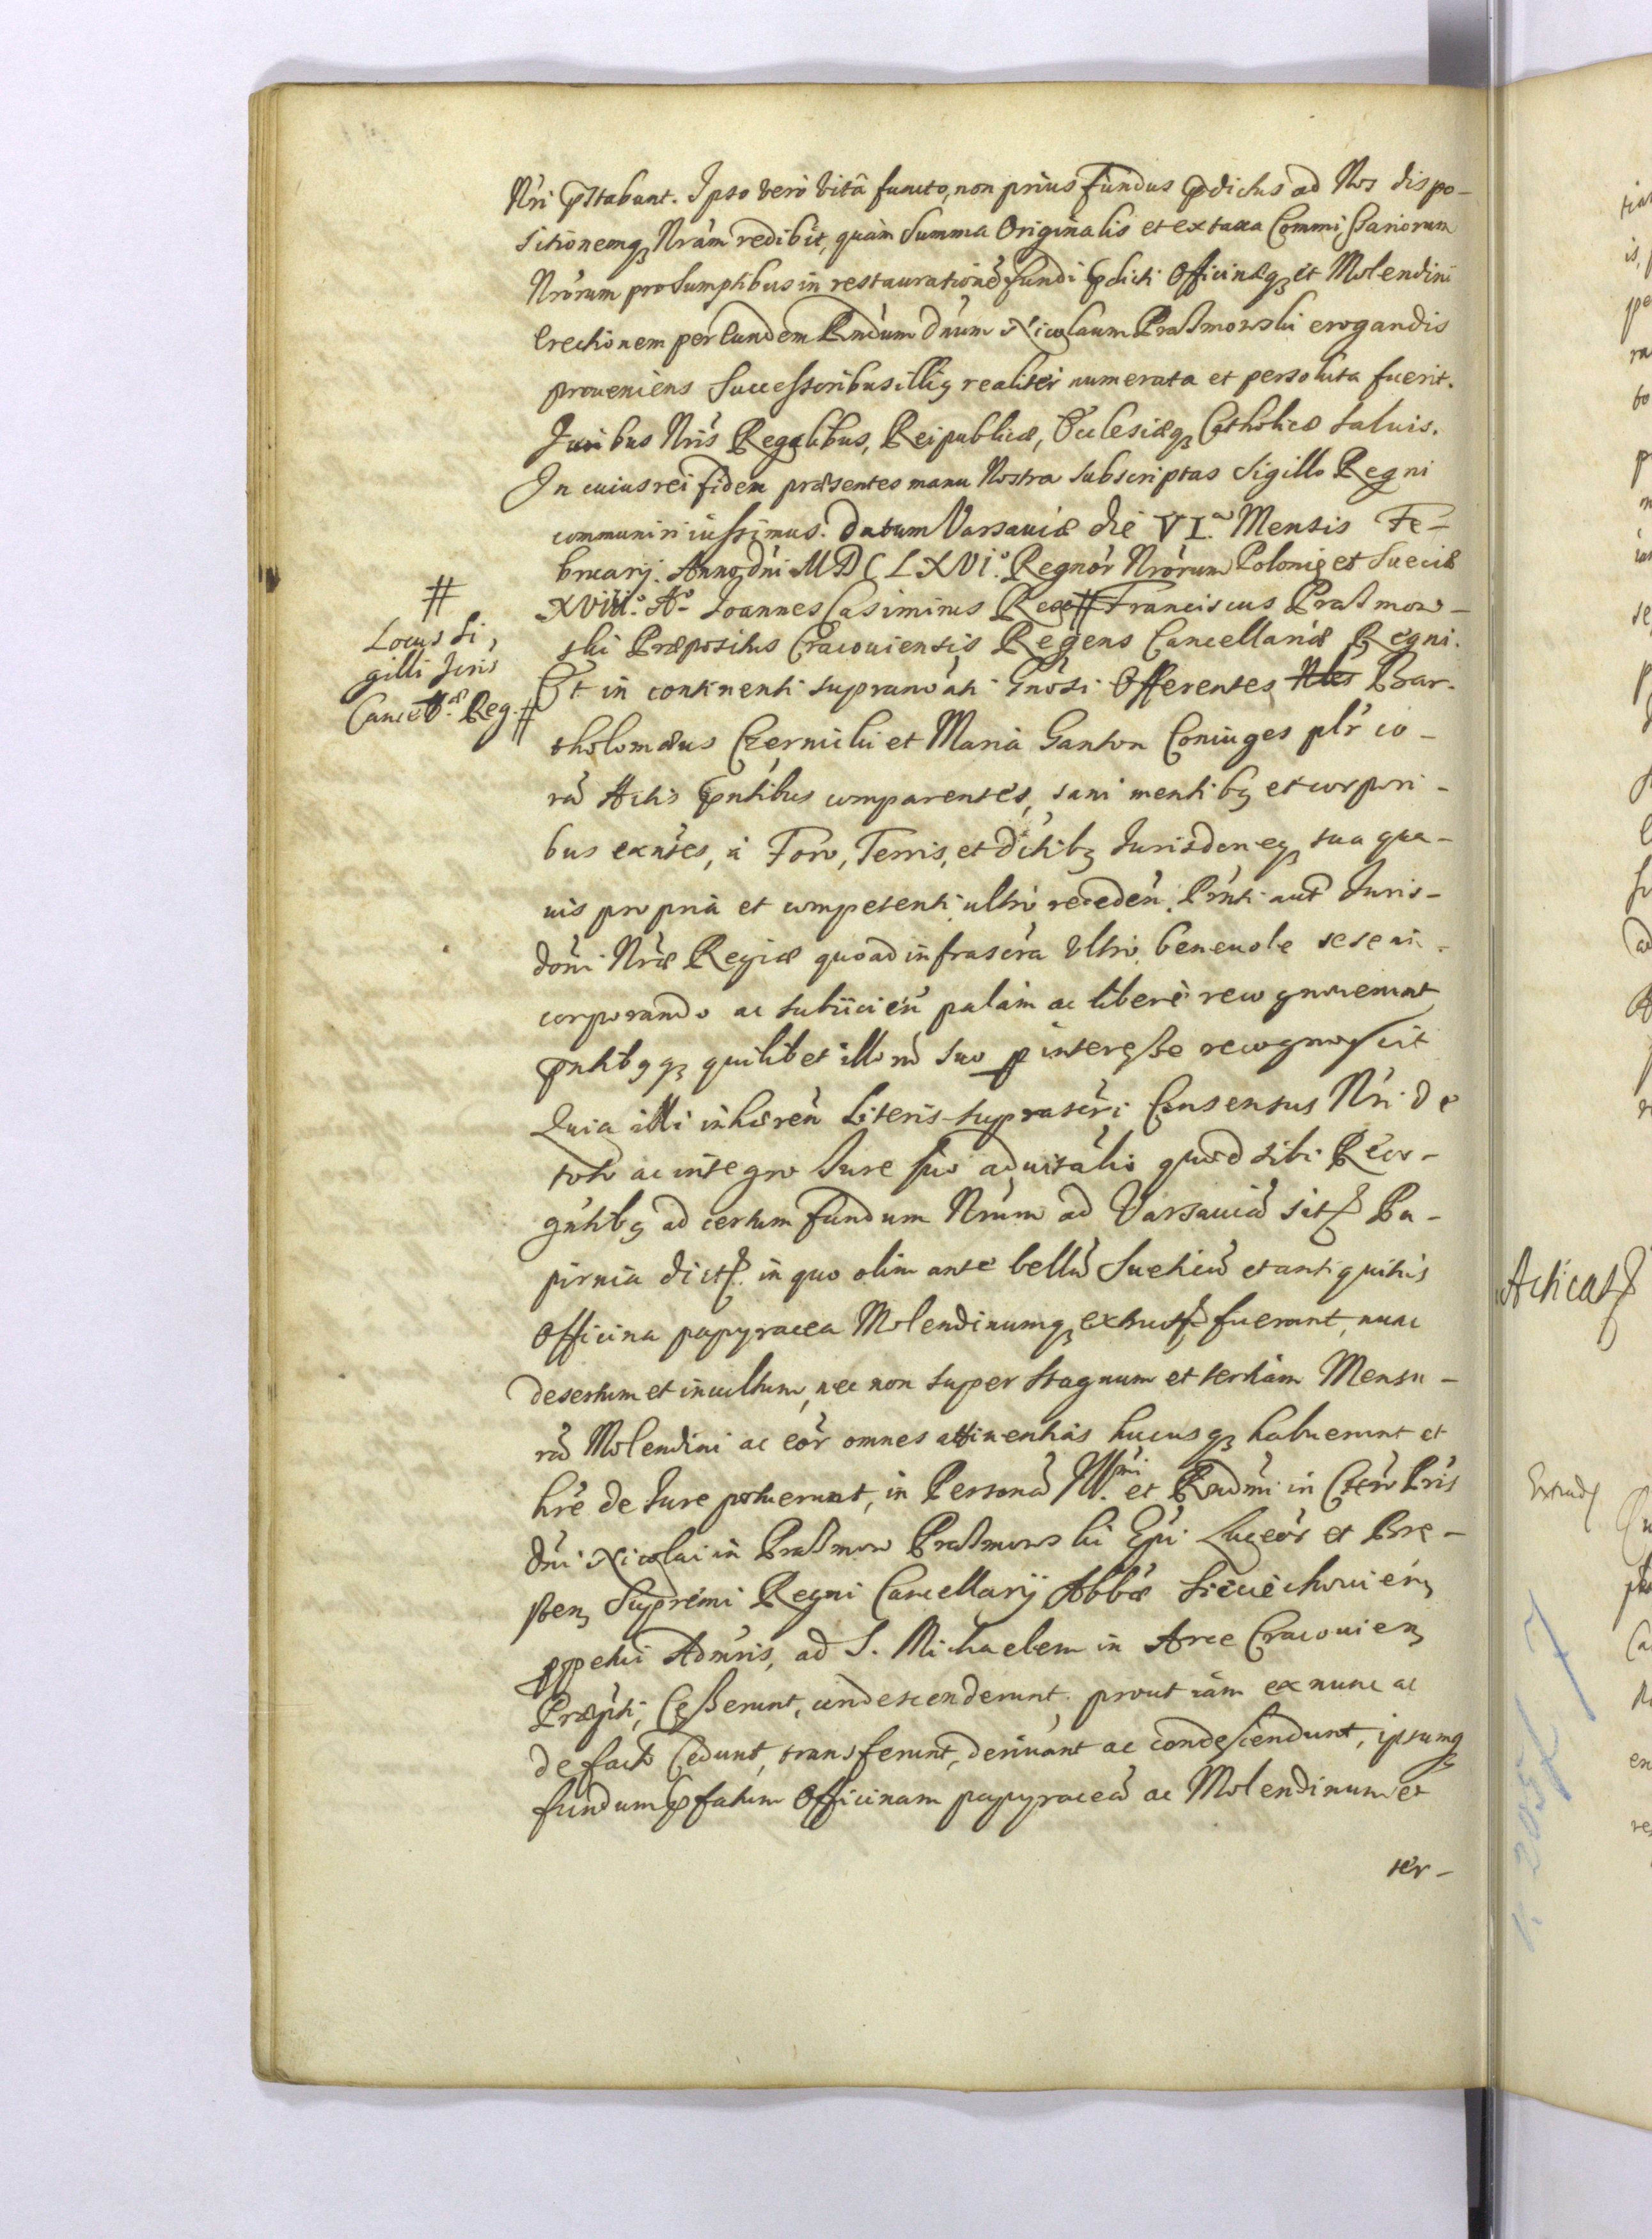 Nri pstabunt. Ipso verò vitâ functo, non prius fundus pdictus ad Nos dispo-
sitionemq3 Nram redibit, quàm summa Originalis et ex taxa Commissariorum
Nrorum pro sumptibus in restaurationē fundi pdicti Officinæq3 et Molendini
erectionem per eundem Rndum Dnum Nicolaum Prażmowski erogandis
proueniens Successoribus illiq realiter numerata et persoluta fuerit.
Iuribus Nris Regalibus, Reipublicæ, Ecclesiæq3 Catholicæ saluis.
In cuius rei fidem præsentes manu Nostra subscriptas Sigillo Regni
communiri iussimus. Datum Varsauiæ die VI.ta Mensis Fe-
bruarij. Anno Dni MDCLXVI.o Regnor Nrorum Poloniæ et Sueciæ
XVIII.o Ao. Ioannes Casimirus Rex # Franciscus Prażmow-
ski Præpositus Cracouiensis Regens Cancellariæ Regni.
Et in continenti supranoati Gnosi Offerentes Nles Bar-
tholomæus Czernicki et Maria Ganton Coniuges plr co-
rā Actis pntibus comparentes, sani mentibq et corpori-
bus exntes, à Foro, Terris, et Dctibq Iurisdoneq3 sua qua-
uis propria et competenti ultro recedeń. Pnti aut Iuris-
doni Nræ Regiæ quoad infrascra vltro beneuole sese in-
corporando ac subiicień palàm ac liberè recognouerunt
pntibqq3 quilibet illorū suo p interesse recognoscit
Quia illi inhæreń Literis suprascri Consensus Nri de
toto ac integro Iure suo aduitalio quod sibi Reco-
gntibq ad certum fundum Nrum ad Varsauiā sit. Pa-
pirnia dict. in quo olim ante bellū Sueticū et antiquitus
Officina papyracea Molendinumq3 exruct. fuerunt, nunc
desertum et incultum, nec non super Stagnum et tertiam Mensu-
rā Molendini ac eor omnes attinentias hucusq3 habuerunt et
hre de Iure potuerunt, in Personā Illmi. et Rndmi in Chro Pris
Dni Nicolai in Prażmow Prażmowski Epi Luceor et Bre-
sten, Supremi Regni Cancellarij Abbæ Sieciechouień,
ppetui Admris, ad S. Michaelem in Arce Cracouien,
Præpti, Cesserunt, condescenderunt. prout iàm ex nunc ac
de facto Cedunt, transferunt, deriuant ac condescendunt, ipsumq
fundum pfatum Officinam papyraceā ac Molendinum et
ter-
#
Locus Si,
gilli
Cancel.æ Reg. #
Acticat
K 205